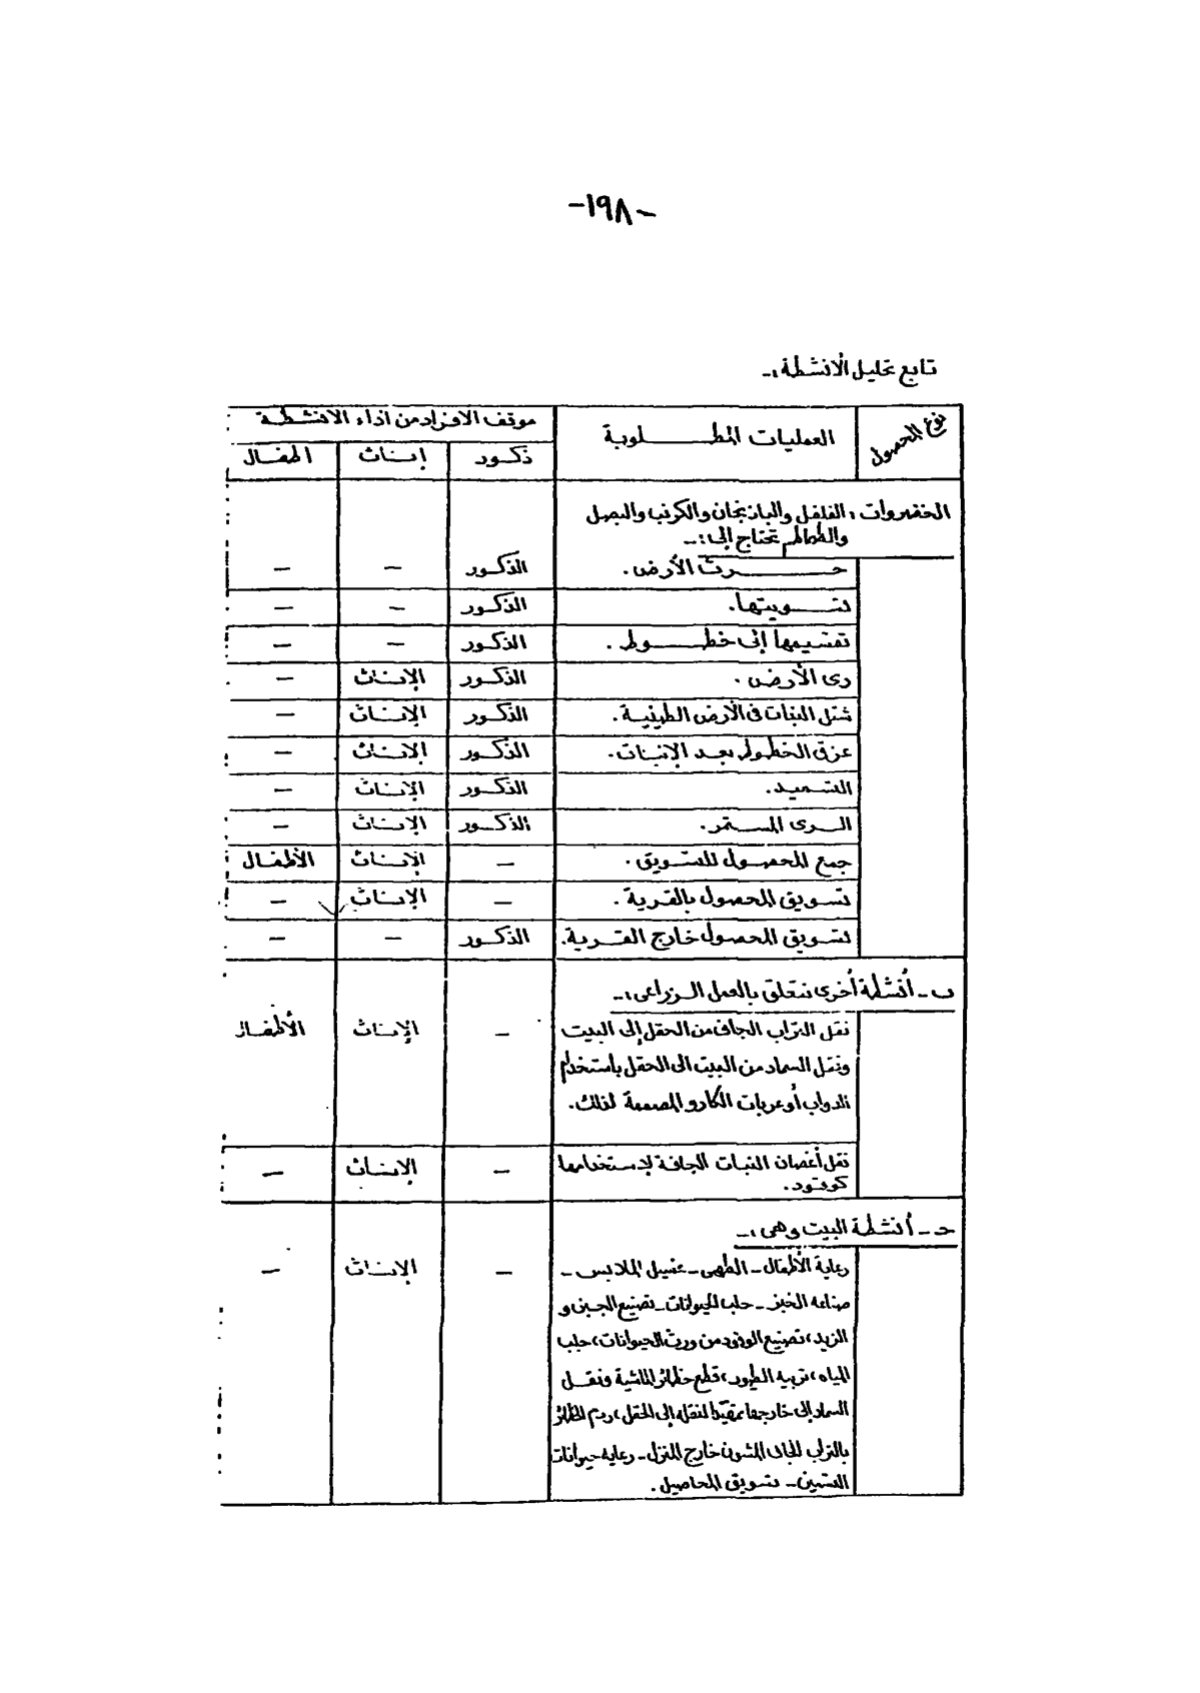 -١٩٨-
تابع تحليل الأنشطة :-
نوع المحصول	العمليات المطلوبة	موقف الافراد من اداء الانشطة
ذكور	إناث	اطفال
الخضروات : الفلفل والباذنجان والكرنب والبصل
والطماطم تحتاج إلى :-
حرث الأرض .	الذكور	—	—
تسويتها .	الذكور	—	—
تقسيمها إلى خطوط .	الذكور	—	—
رى الأرض .	الذكور	الإناث	—
شتل النبات فى الأرض الطينية .	الذكور	الإناث	—
عزق الخطوط بعد الإنبات .	الذكور	الإناث	—
التسميد .	الذكور	الإناث	—
الرى المستمر .	الذكور	الإناث	—
جمع المحصول للتسويق .	—	الإناث	الأطفال
تسويق المحصول بالقرية .	—	الإناث	—
تسويق المحصول خارج القرية .	الذكور	—	—
ب - أنشطة أخرى تتعلق بالعمل الزراعى :-
نقل التراب الجاف من الحقل إلى البيت	—	الإناث	الأطفال
ونقل السماد من البيت الى الحقل باستخدام
الدواب أو عربات الكارو المصممة لذلك .
نقل أغصان النبات الجافة لاستخدامها	—	الإناث	—
كوقود .
حـ - أنشطة البيت وهى :-
رعاية الأطفال - الطهى - غسيل الملابس -	—	الإناث	—
صناعة الخبز - حلب الحيوانات - تصنيع الجبن و
الزبد ، تصنيع الوقود من روث الحيوانات ، جلب
المياه ، تربية الطيور ، قطع حظائر الماشية ونقل
السماد إلى خارجها تمهيدا لنقله إلى الحقل ، ردم الحظائر
بالتراب الجاف المشون خارج المنزل - رعاية حيوانات
التسمين - تسويق المحاصيل .